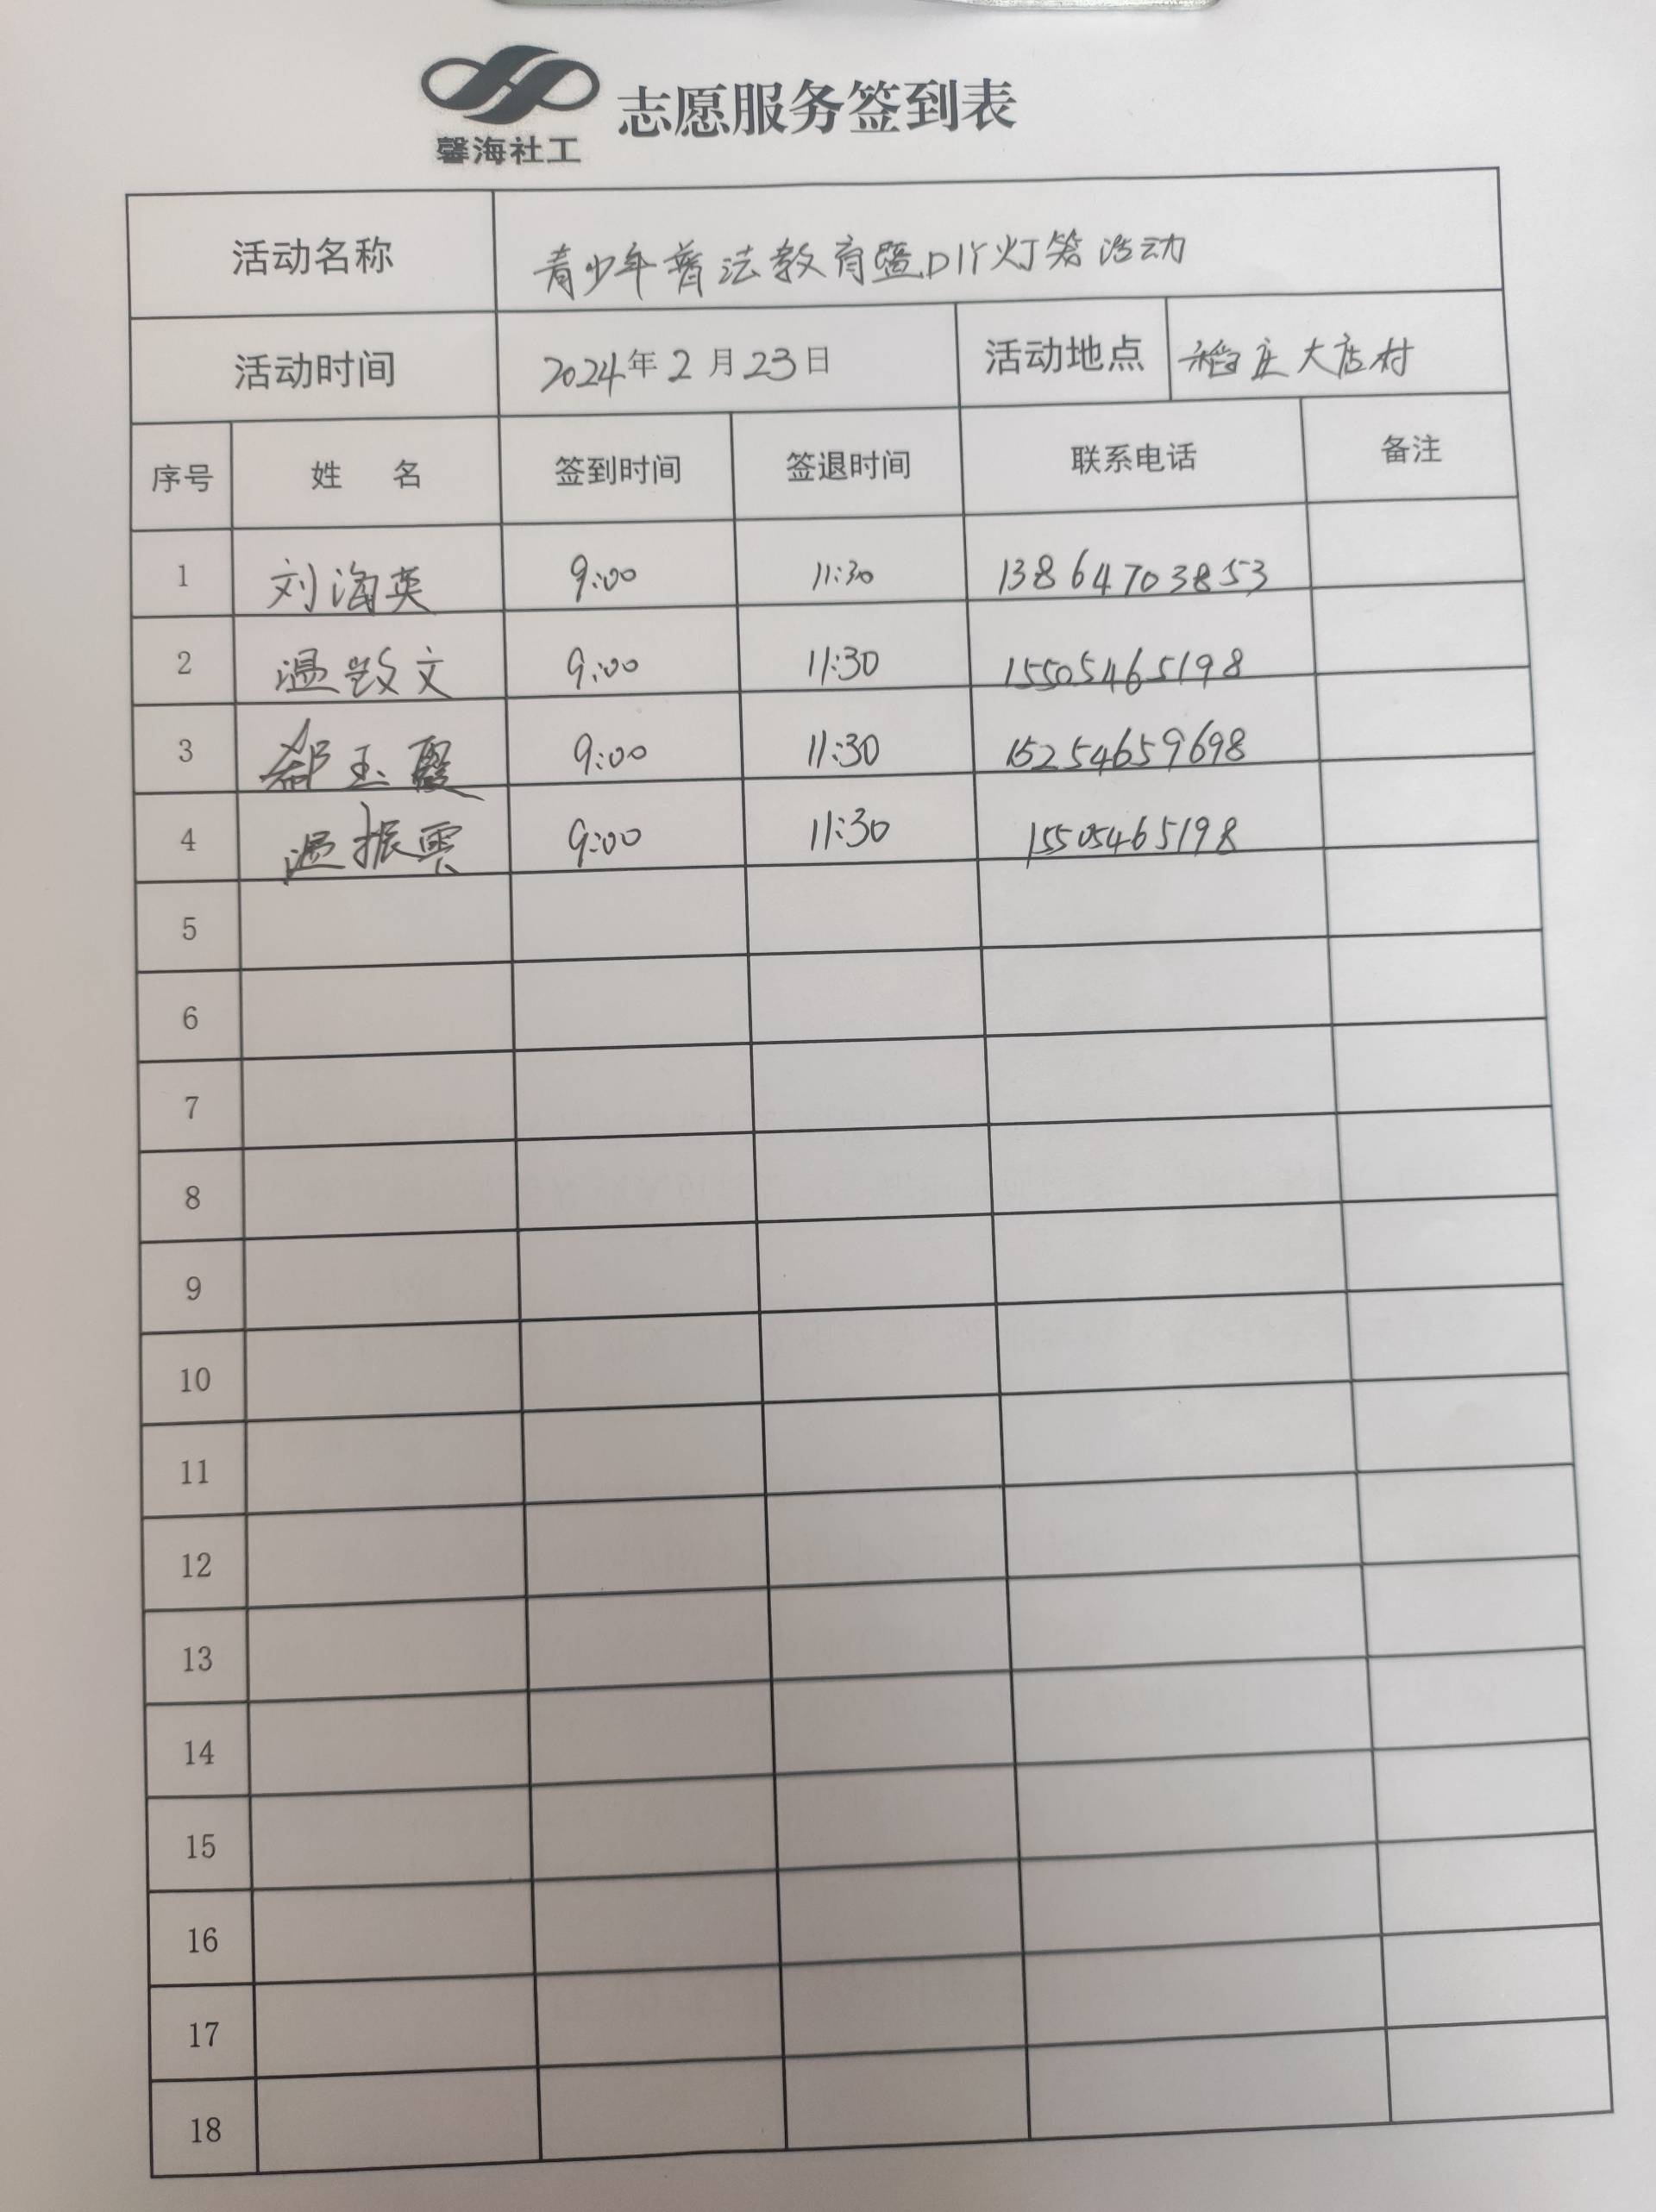 馨海社工
志愿服务签到表
活动名称 青少年普法教育暨DIY灯笼活动
活动时间 2024年2月23日 活动地点 稻庄大店村
序号 姓 名 签到时间 签退时间 联系电话 备注
1 刘海英 9:00 11:30 13864703853
2 温 文 9:00 11:30 15505465198
3 郝玉霞 9:00 11:30 15254659698
4 温振雲 9:00 11:30 15505465198
5
6
7
8
9
10
11
12
13
14
15
16
17
18